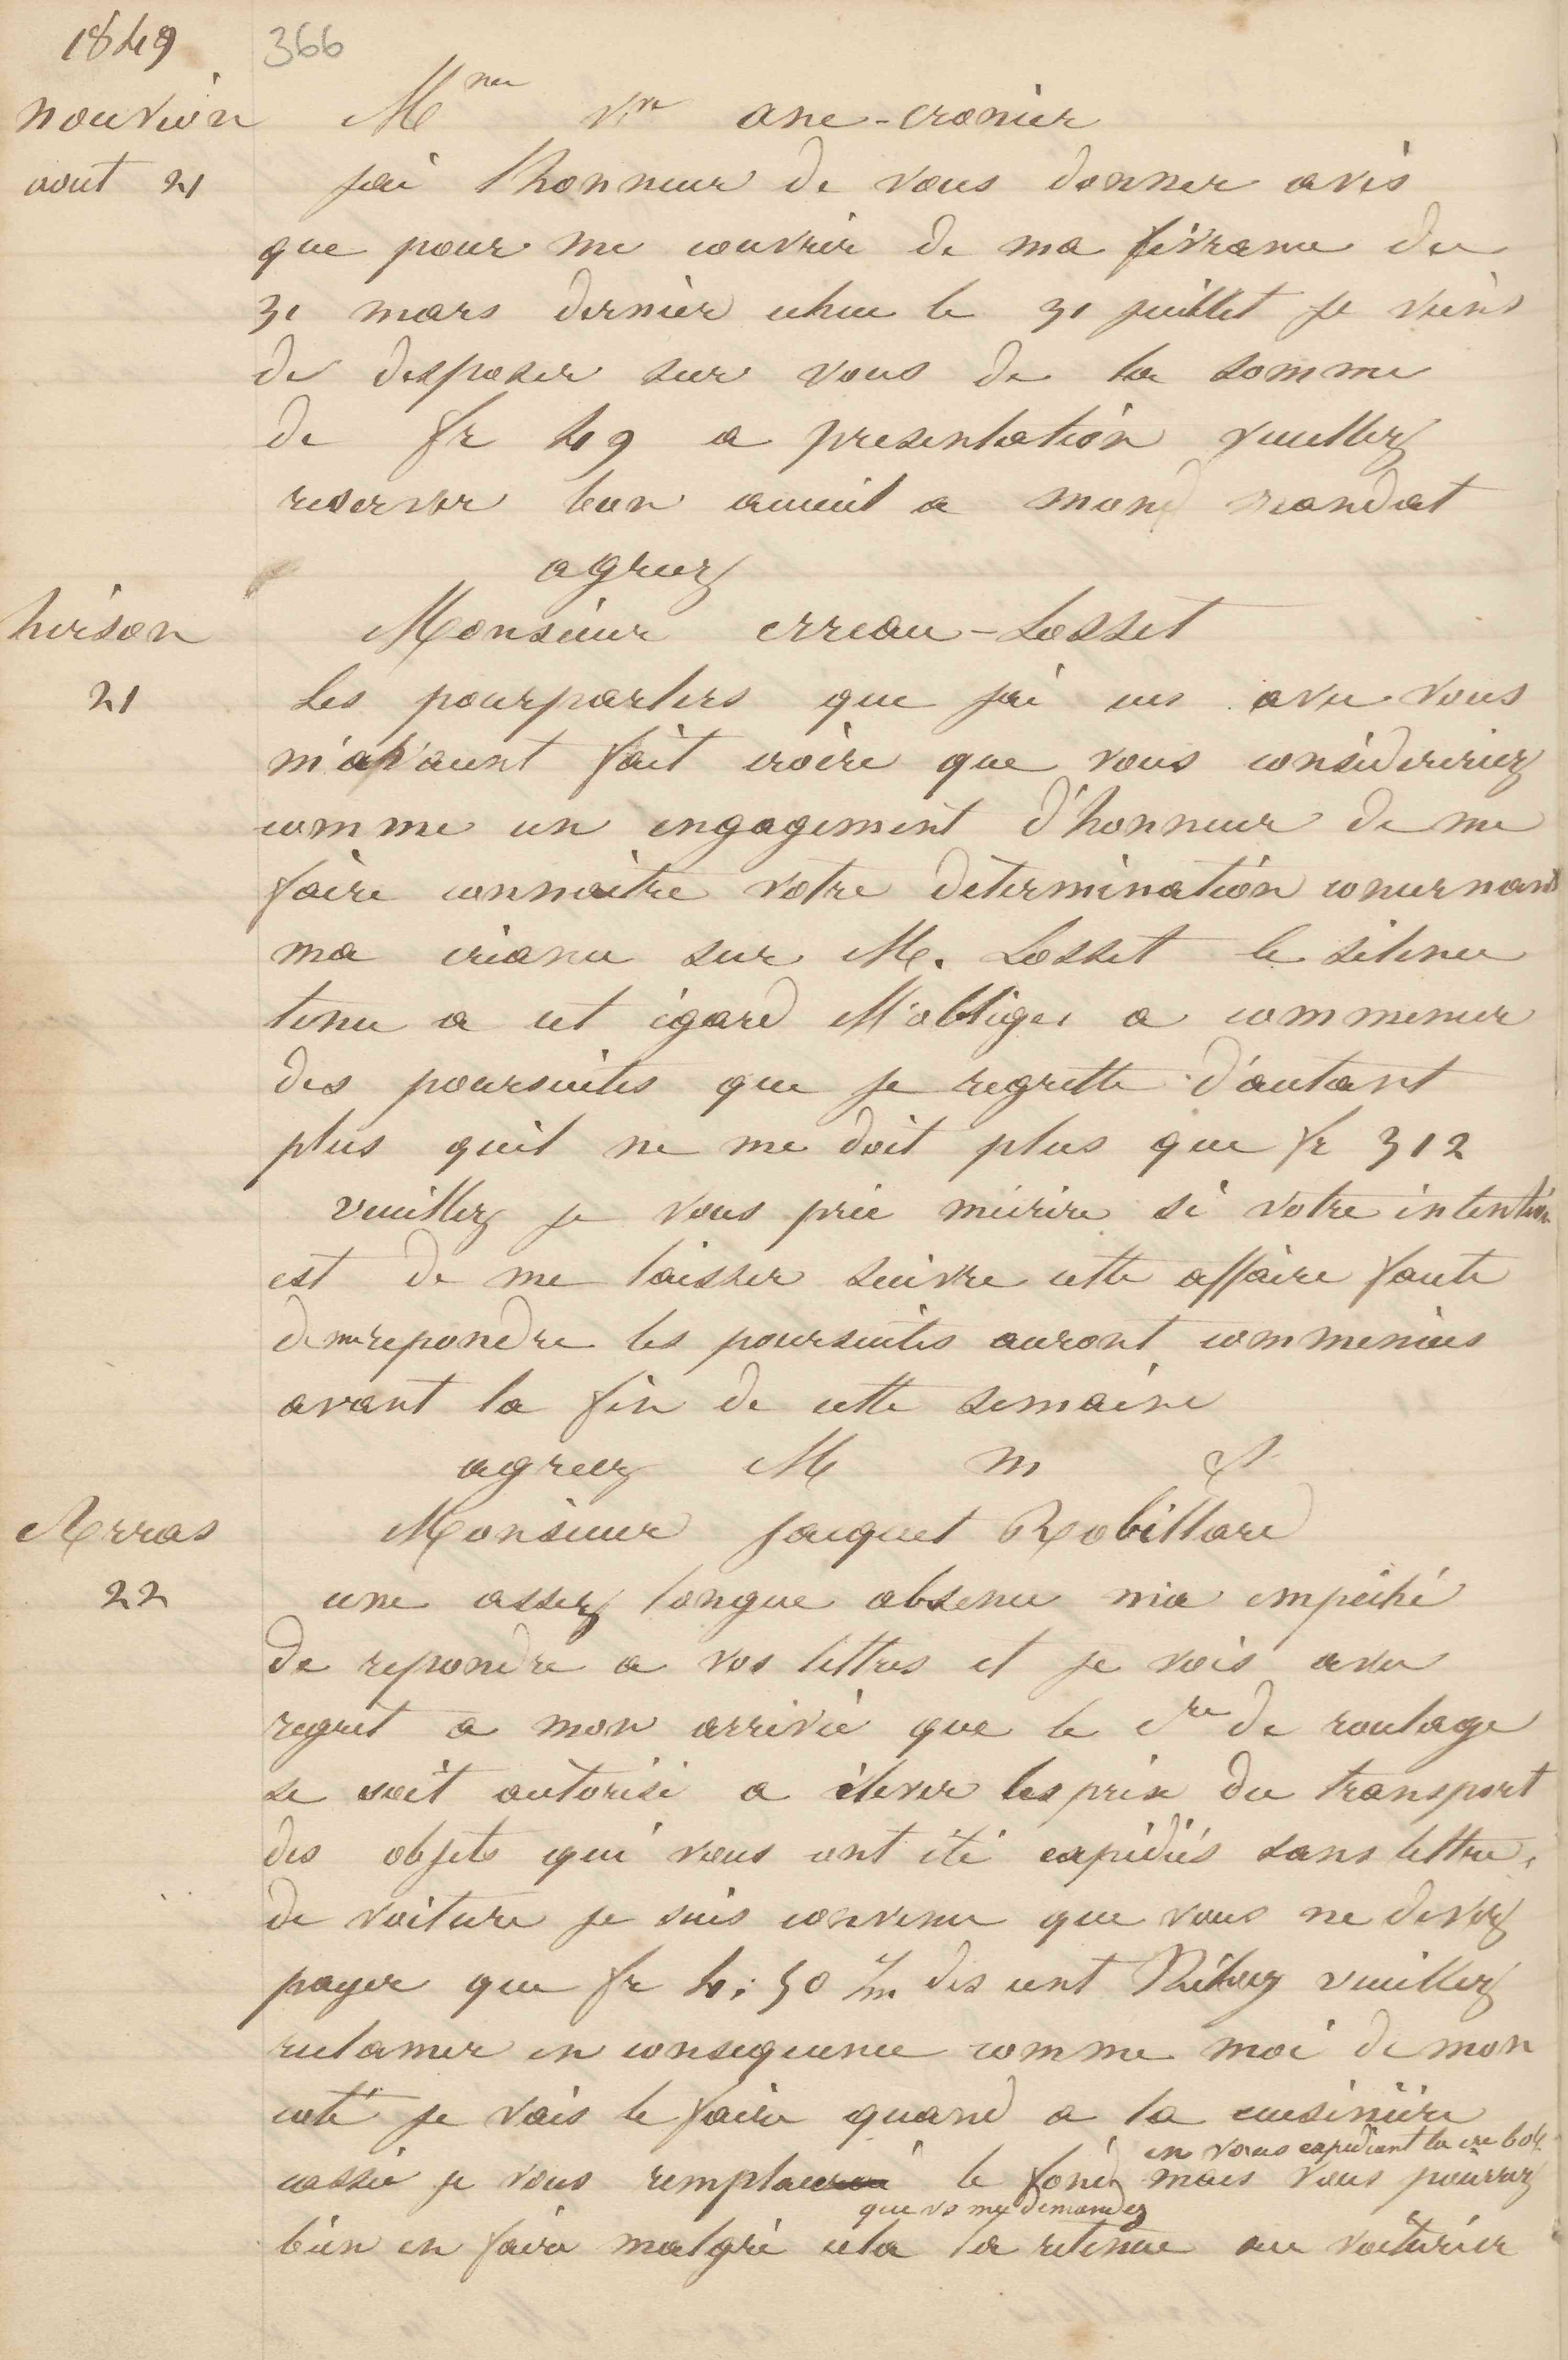 1849 366
nouvion Mme Vve ane-cronier
aout 21 jai lhonneur de vous donner avis
que pour me couvrir de ma livrance du
31 mars dernier echue le 31 juillet je viens
de disposer sur vous de la somme
de fr 49 a presentation veuillez
reserver bon accueil a mond mandat
agreez
hirson Monsieur erreau-Losset
21 Les pourparlers que jai eus avec vous
m'avaient fait croire que vous considereriez
comme un engagement d'honneur de me
faire connaitre votre détermination concernant
ma créance sur M. Losset le silence
tenu a cet égard M'oblige a commencer
des poursuites que je regrette d'autant
plus quil ne me doit plus que fr 312
veuillez je vous prie mécrire si votre intention
est de me laisser suivre cette affaire faute
de me repondre les poursuites auront commencées
avant la fin de cette semaine
agreez M m &
Arras Monsieur Jacquet Robillard
22 une assez longue absence m'a empéché
de repondre a vos lettres et je vois avec
regret a mon arrivée que le Cre de roulage
se soit autorisé a élever les prix du transport
des objets qui vous ont été expédiés sans lettre
de voiture je suis convenu que vous ne devez
payer que fr 4:50 des cent veuillez
reclamer en consequence comme moi de mon
coté je vais le faire quand a la cuisinière
en vous expediant la
cassée je vous remplacerai le fond mais vous pourrez
que vs me demandez
bien en faire malgré cela la retenue au voiturier